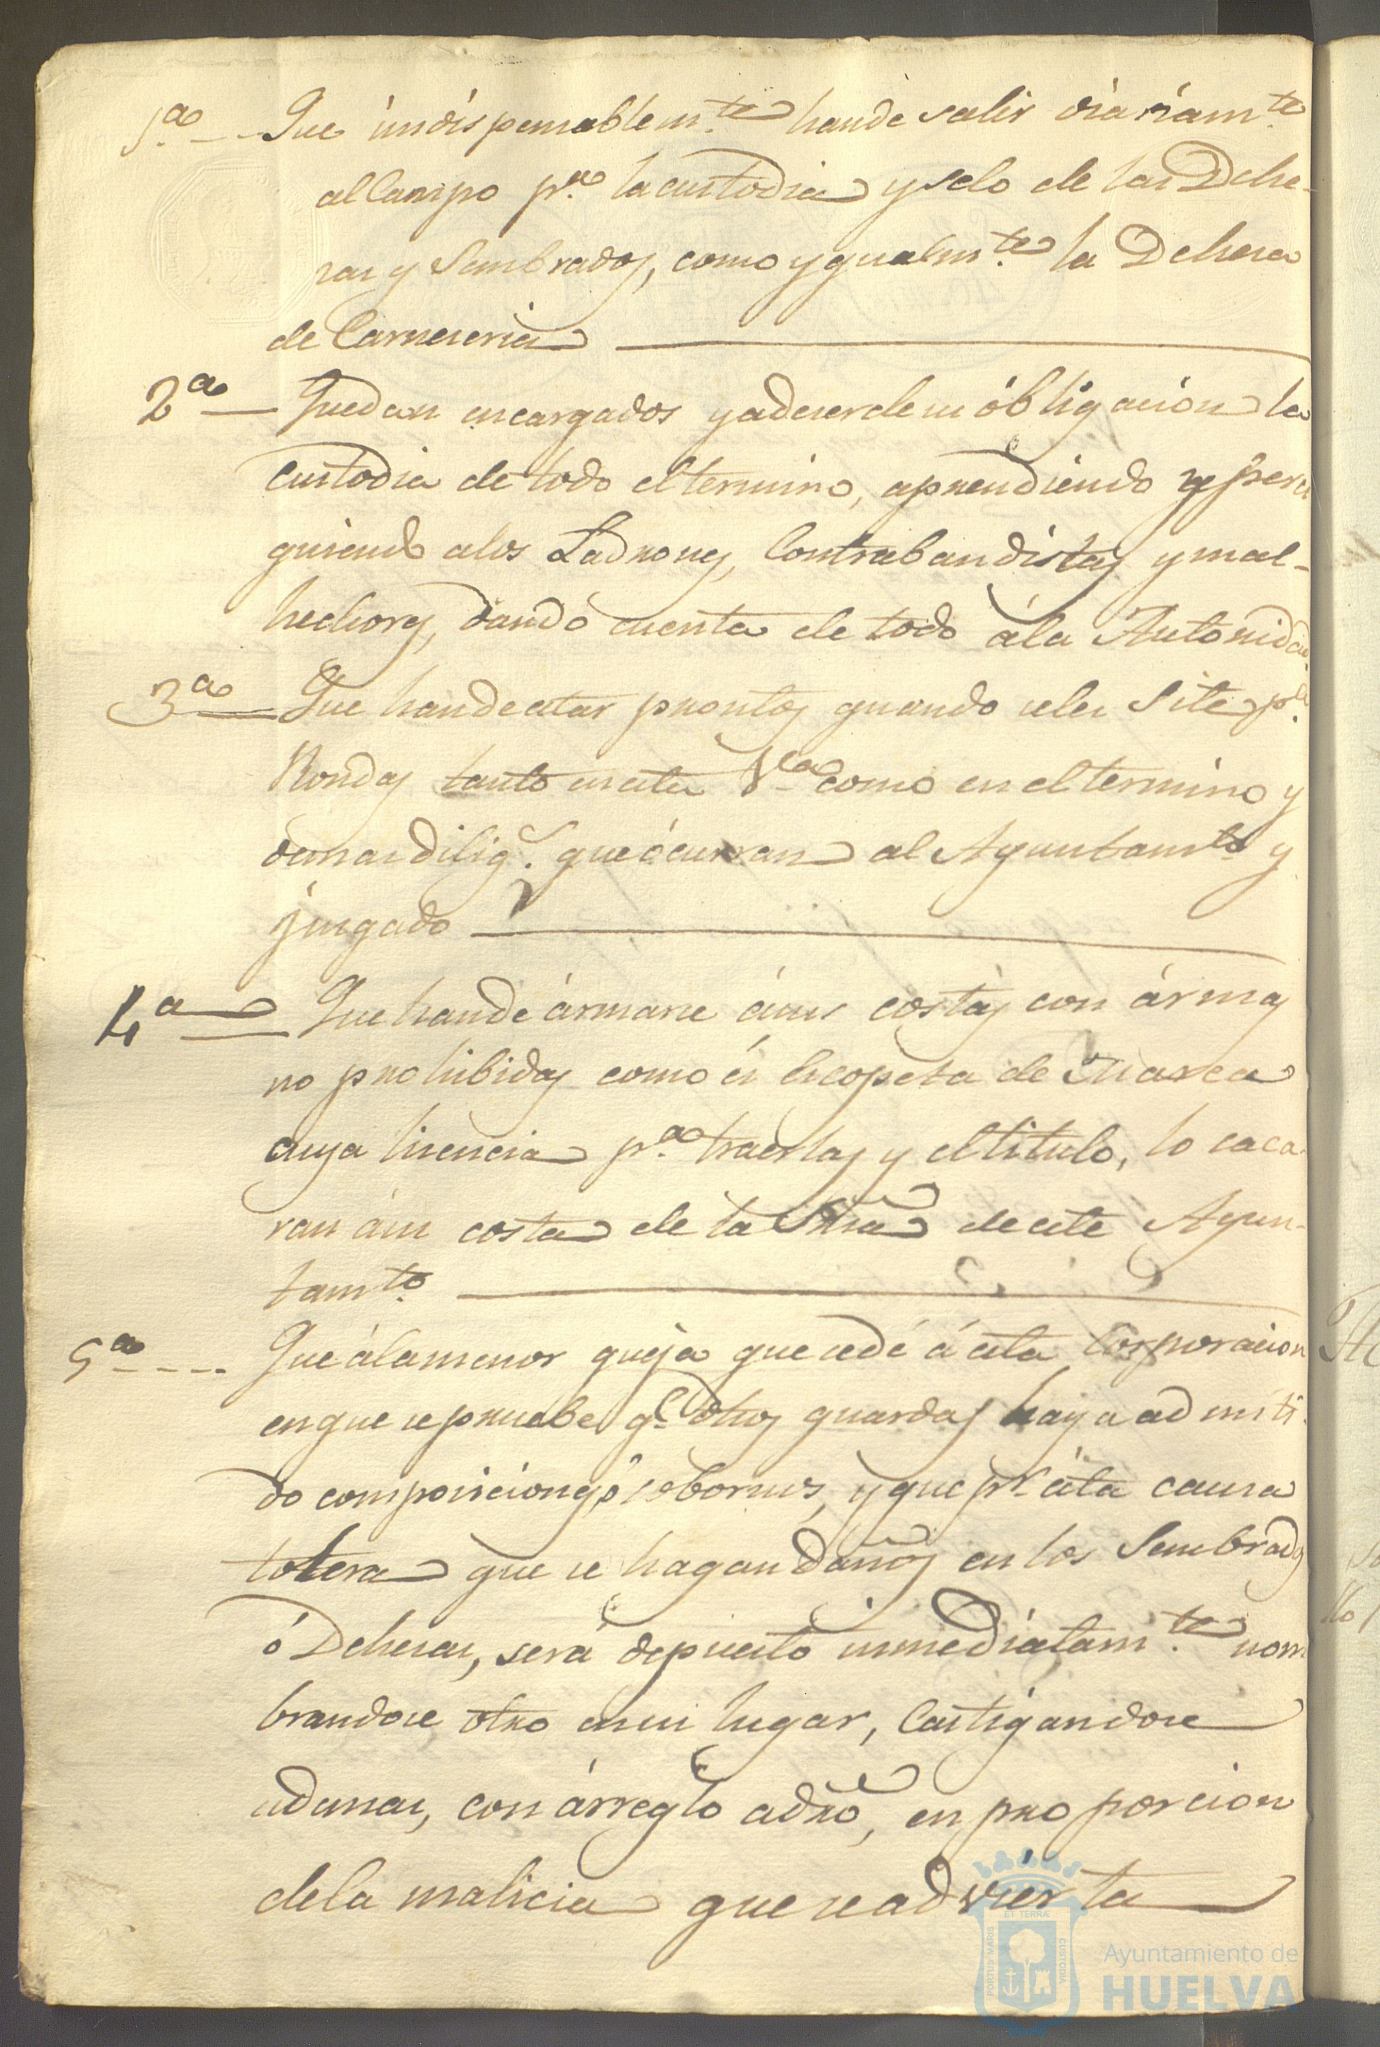 1.ª Que indispensablem.te hande salir diariam.te
al Campo p.ª la custodia y selo de las Dehe-
sas y Sembrados, como ygualm.te la Dehesa
de Carneseria
2ª Quedan encargados y adeser de su óbligacion la
custodia de todo eltermino, aprendiendo y persi
guiendo alos Ladrones, Contrabandistas y mal-
hechores, dando cuenta de todo ála Autoridad.
3ª Que hande estar prontos quando seles Site p.ª
Rondas tanto enesta V.ª como en el termino y
demas dilig.s que ócurran al Ayuntam.to y
jusgado
4ª Que hande ármarse ásus costas con ármas
no prohibidas como és Escopeta de Marca
cuya licencia p.ª traerlas y eltitulo, lo saca
ran ásu costa de la Sñia de este Ayun-
tam.to
5ª Que álamenor queja que sedé á esta Corporacion
enque sepruebe q.e dhos guardas haya admiti-
do composiciones, ó sobornos, y que p.r ésta causa
tolera que se hagan daños en los Sembrados
ó Dehesas, será depuesto inmediatam.te nom
brandose otro ensu lugar, Castigandose
ademas, con árreglo adrõ, en proporcion
dela malicia que se advierta
PORTUS MARIS
ET TERRA
CUSTODIA
Ayuntamiento de
HUELVA